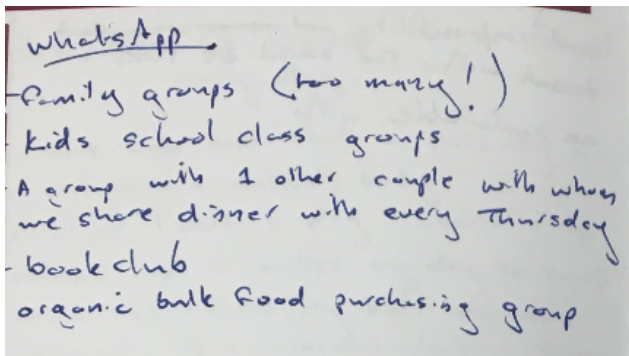 WhatsApp
- Family groups (too many!)
- kids school class groups
- A group with 1 other couple with whom
we share dinner with every Thursday
- bookclub
organic bulk food purchasing group